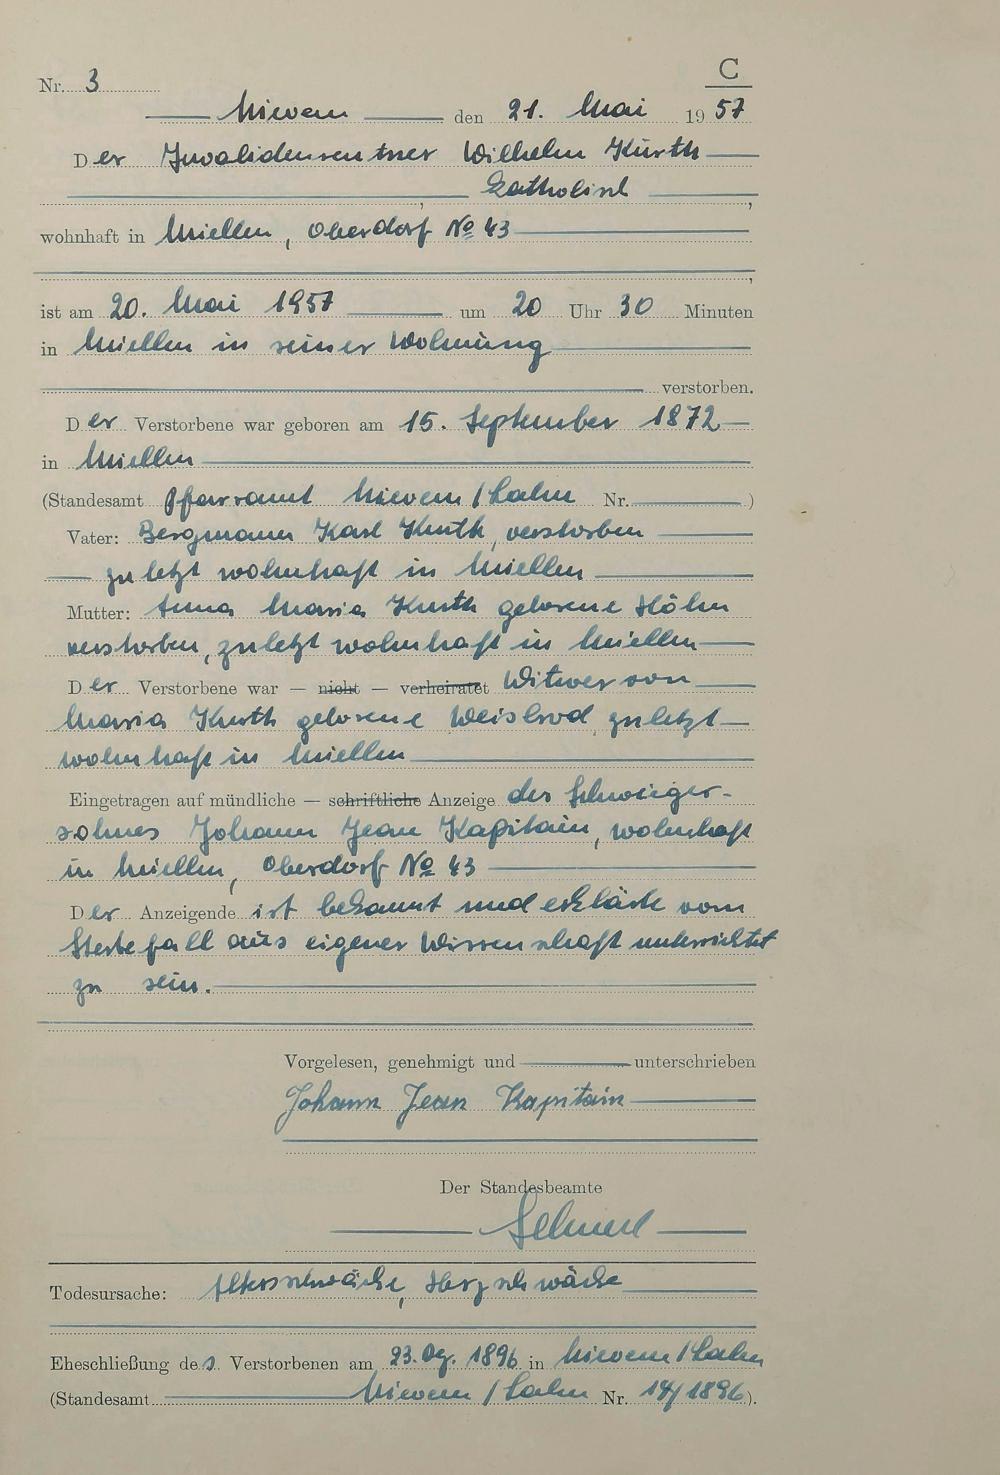 Nr. 3
C
Nievern den 21. Mai 1957
Der Invalidenrentner Wilhelm Kurth
katholisch,
wohnhaft in Miellen, Oberdorf No 43
,
ist am 20. Mai 1957 um 20 Uhr 30 Minuten
in Miellen in seiner Wohnung
verstorben.
Der Verstorbene war geboren am 15. September 1872
in Miellen
(Standesamt Pfarramt Nievern/Lahn Nr. )
Vater: Bergmann Karl Kurth, verstorben
zuletzt wohnhaft in Miellen
Mutter: Anna Maria Kurth geborene Höhn
verstorben, zuletzt wohnhaft in Miellen
Der Verstorbene war — nicht — verheiratet Witwer von
Maria Kurth geborene Weisbrod zuletzt
wohnhaft in Miellen
Eingetragen auf mündliche — schriftliche Anzeige des Schwieger-
sohnes Johann Jean Kapitain, wohnhaft
in Miellen, Oberdorf No 43
Der Anzeigende ist bekannt und erklärte vom
Sterbefall aus eigener Wissenschaft unterrichtet
zu sein.
Vorgelesen, genehmigt und unterschrieben
Johann Jean Kapitain
Der Standesbeamte
Todesursache: Altersschwäche, Herzschwäche
Eheschließung des Verstorbenen am 23. Dez. 1896 in Nievern/Lahn
(Standesamt Nievern/Lahn Nr. 14/1896).